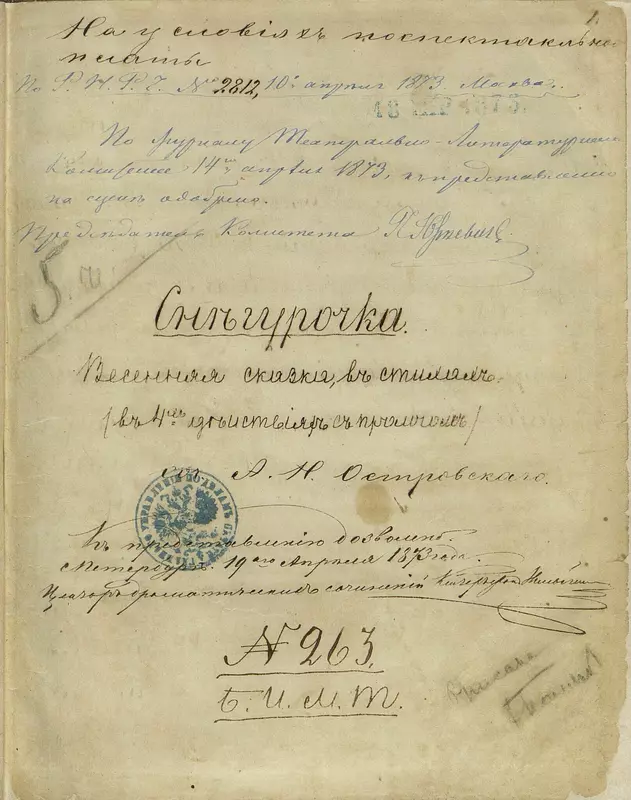 1.
На условіяхъ поспектакльной
платы
По Р. И. Р. Т. № 2812, 10го апрѣля 1873. Москва.
По журналу Театрально-Литературнаго
Комитета 14го апрѣля 1873, къ представленію
на сценѣ одобрено.
Предсѣдатель Комитета П. Юркевичъ
5.
Снѣгурочка.
Весенняя сказка, въ стихахъ.
/въ 4хъ дѣйствіяхъ съ прологомъ/
соч. А. Н. Островскаго.
Къ представленію дозволено.
Петербургъ. 19го Апрѣля 1873 года.
Цензоръ драматическихъ сочиненій
№ 263.
Б. И. М. Т.